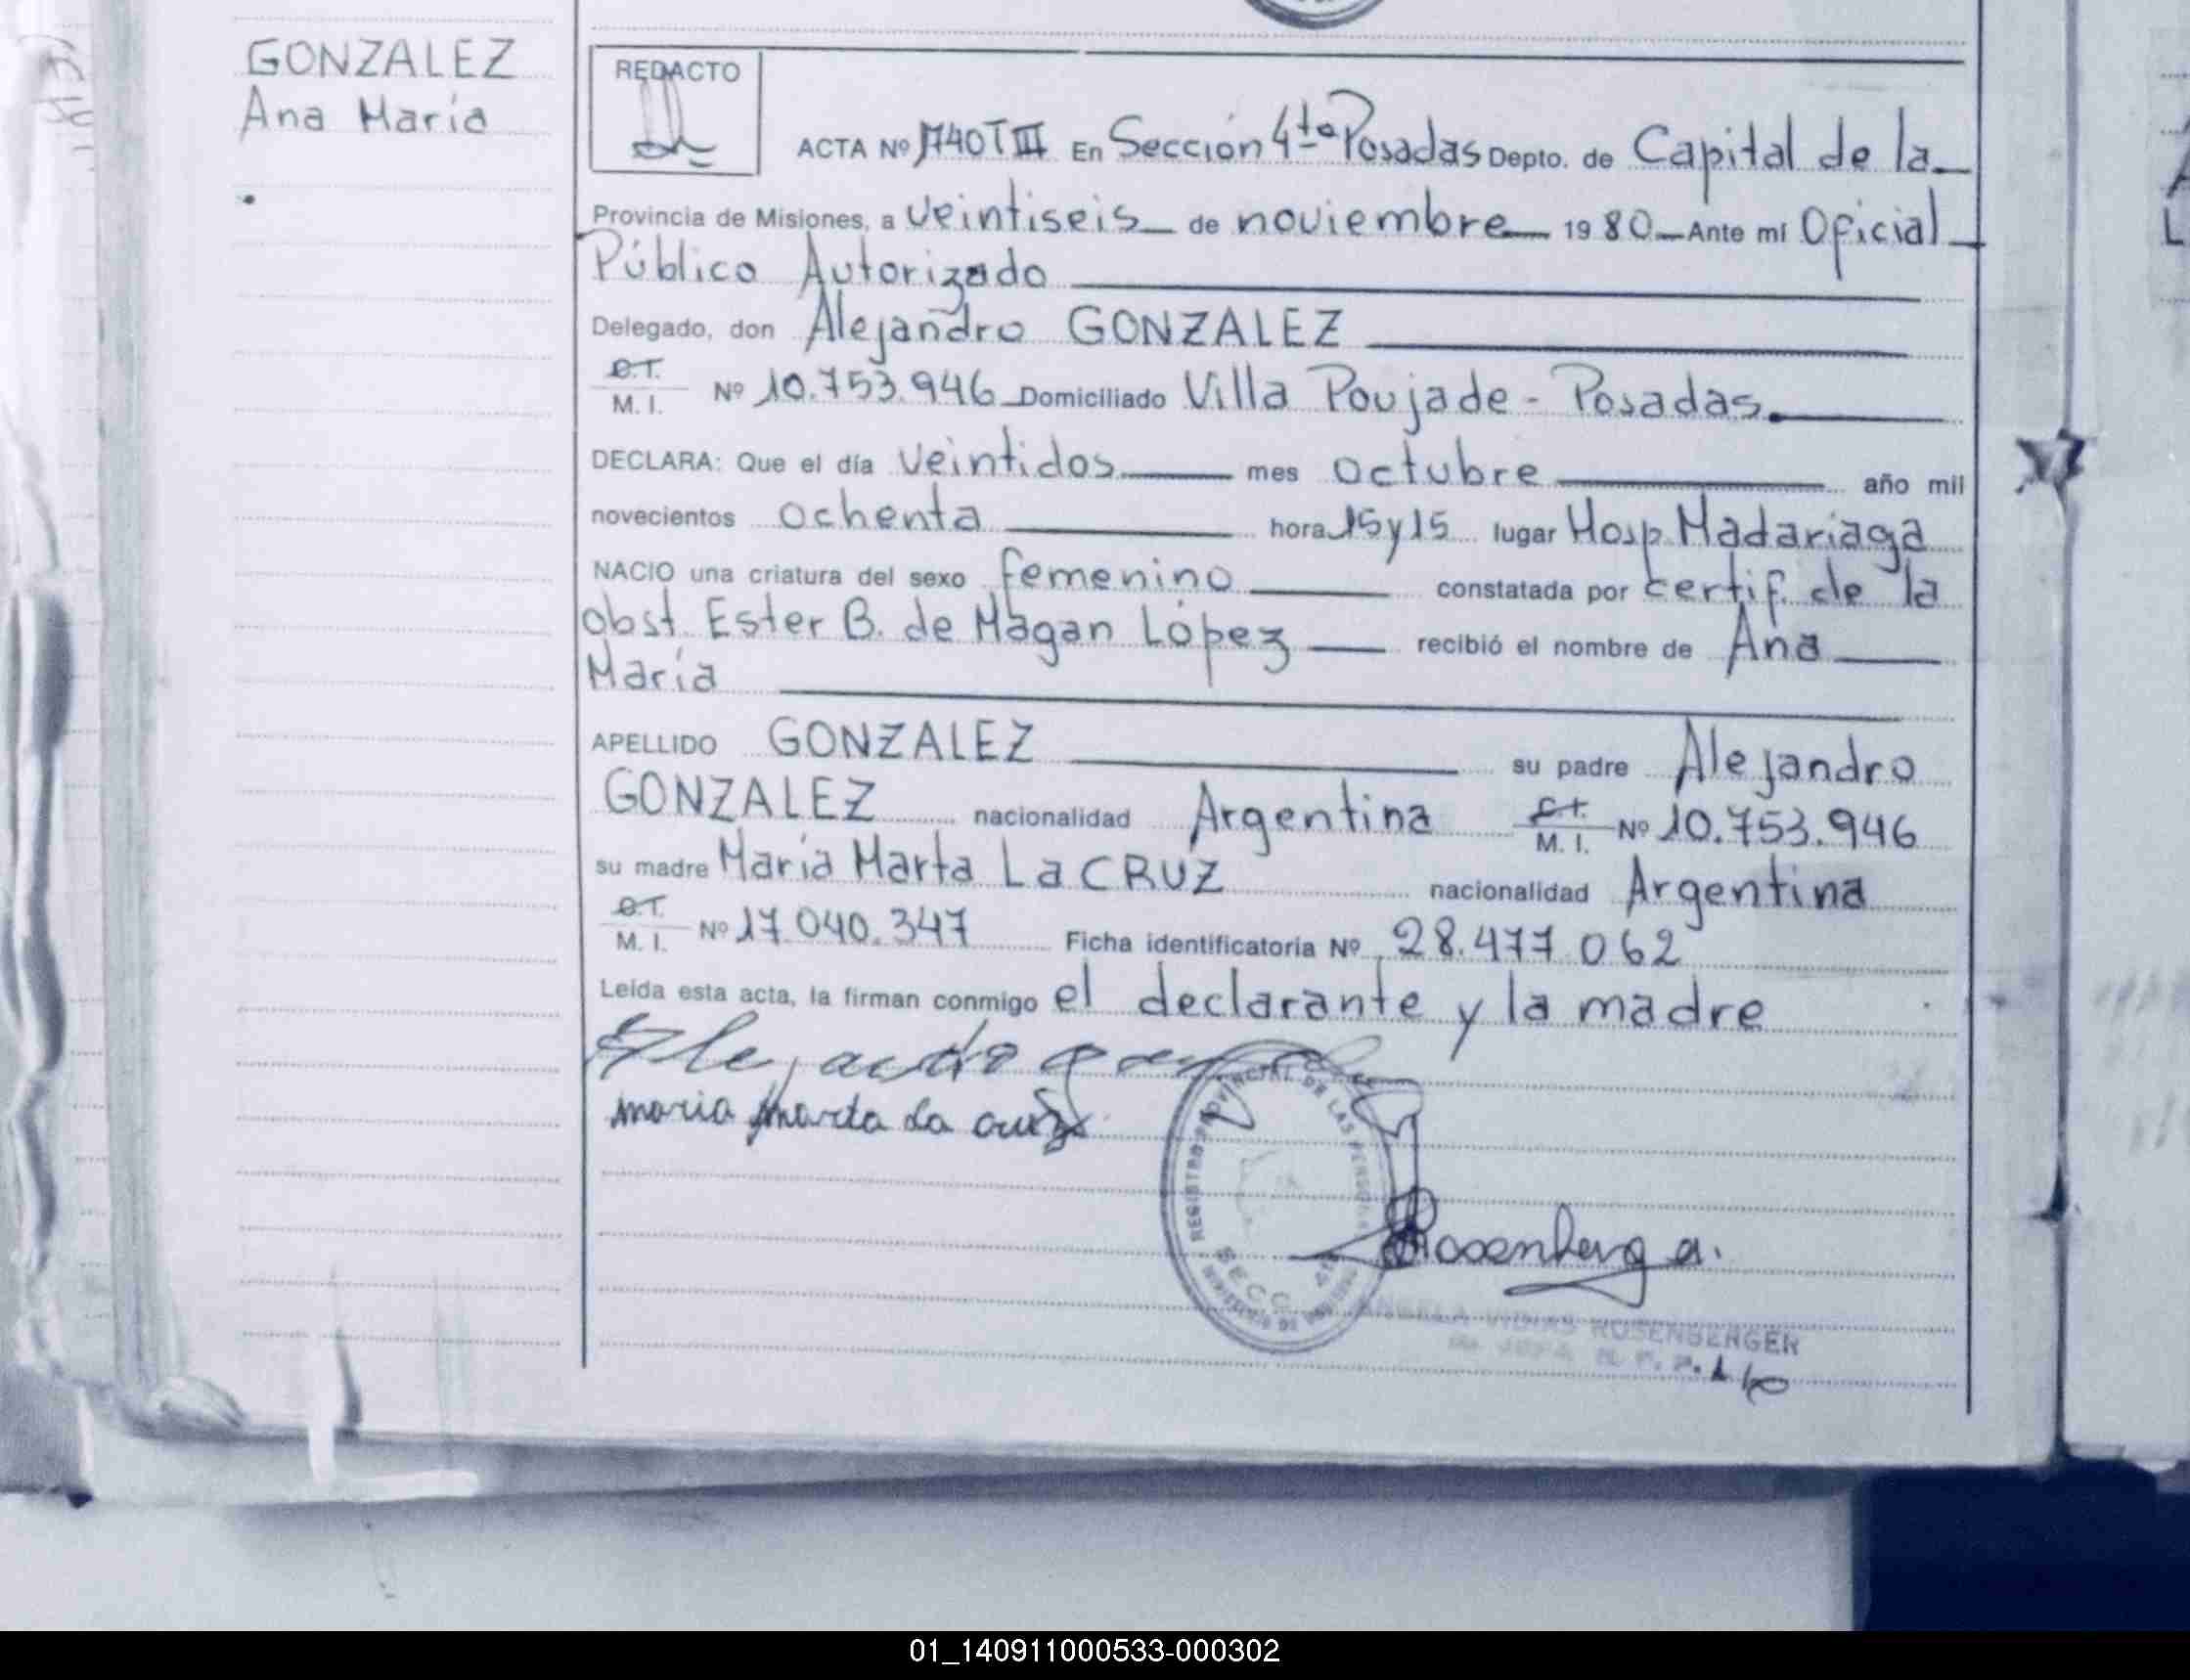 GONZALEZ
Ana María
REDACTO
ACTA Nº 1740 T III En Sección 4ta Posadas Depto. de Capital de la
Provincia de Misiones, a veintiseis de noviembre 1980 Ante mí Oficial
Público Autorizado
Delegado, don Alejandro GONZALEZ
C.I.
M. I. Nº 10.753.946 Domiciliado Villa Poujade - Posadas.
DECLARA: Que el día veintidos mes octubre año mil
novecientos ochenta hora 15 y 15 lugar Hosp. Madariaga
NACIO una criatura del sexo femenino constatada por certif. de la
obst. Ester B. de Magan López recibió el nombre de Ana
María
APELLIDO GONZALEZ su padre Alejandro
GONZALEZ nacionalidad Argentina C.I. M. I. Nº 10.753.946
su madre María Marta La CRUZ nacionalidad Argentina
C.I.
M. I. Nº 17.040.347 Ficha identificatoria Nº 28.477.062
Leída esta acta, la firman conmigo el declarante y la madre
Alejandro
maria marta La cruz
REGISTRO PROVINCIAL DE LAS PERSONAS
SECC. 4ta
Rosenberg a.
ANGELA ROSENBERGER
01_140911000533-000302